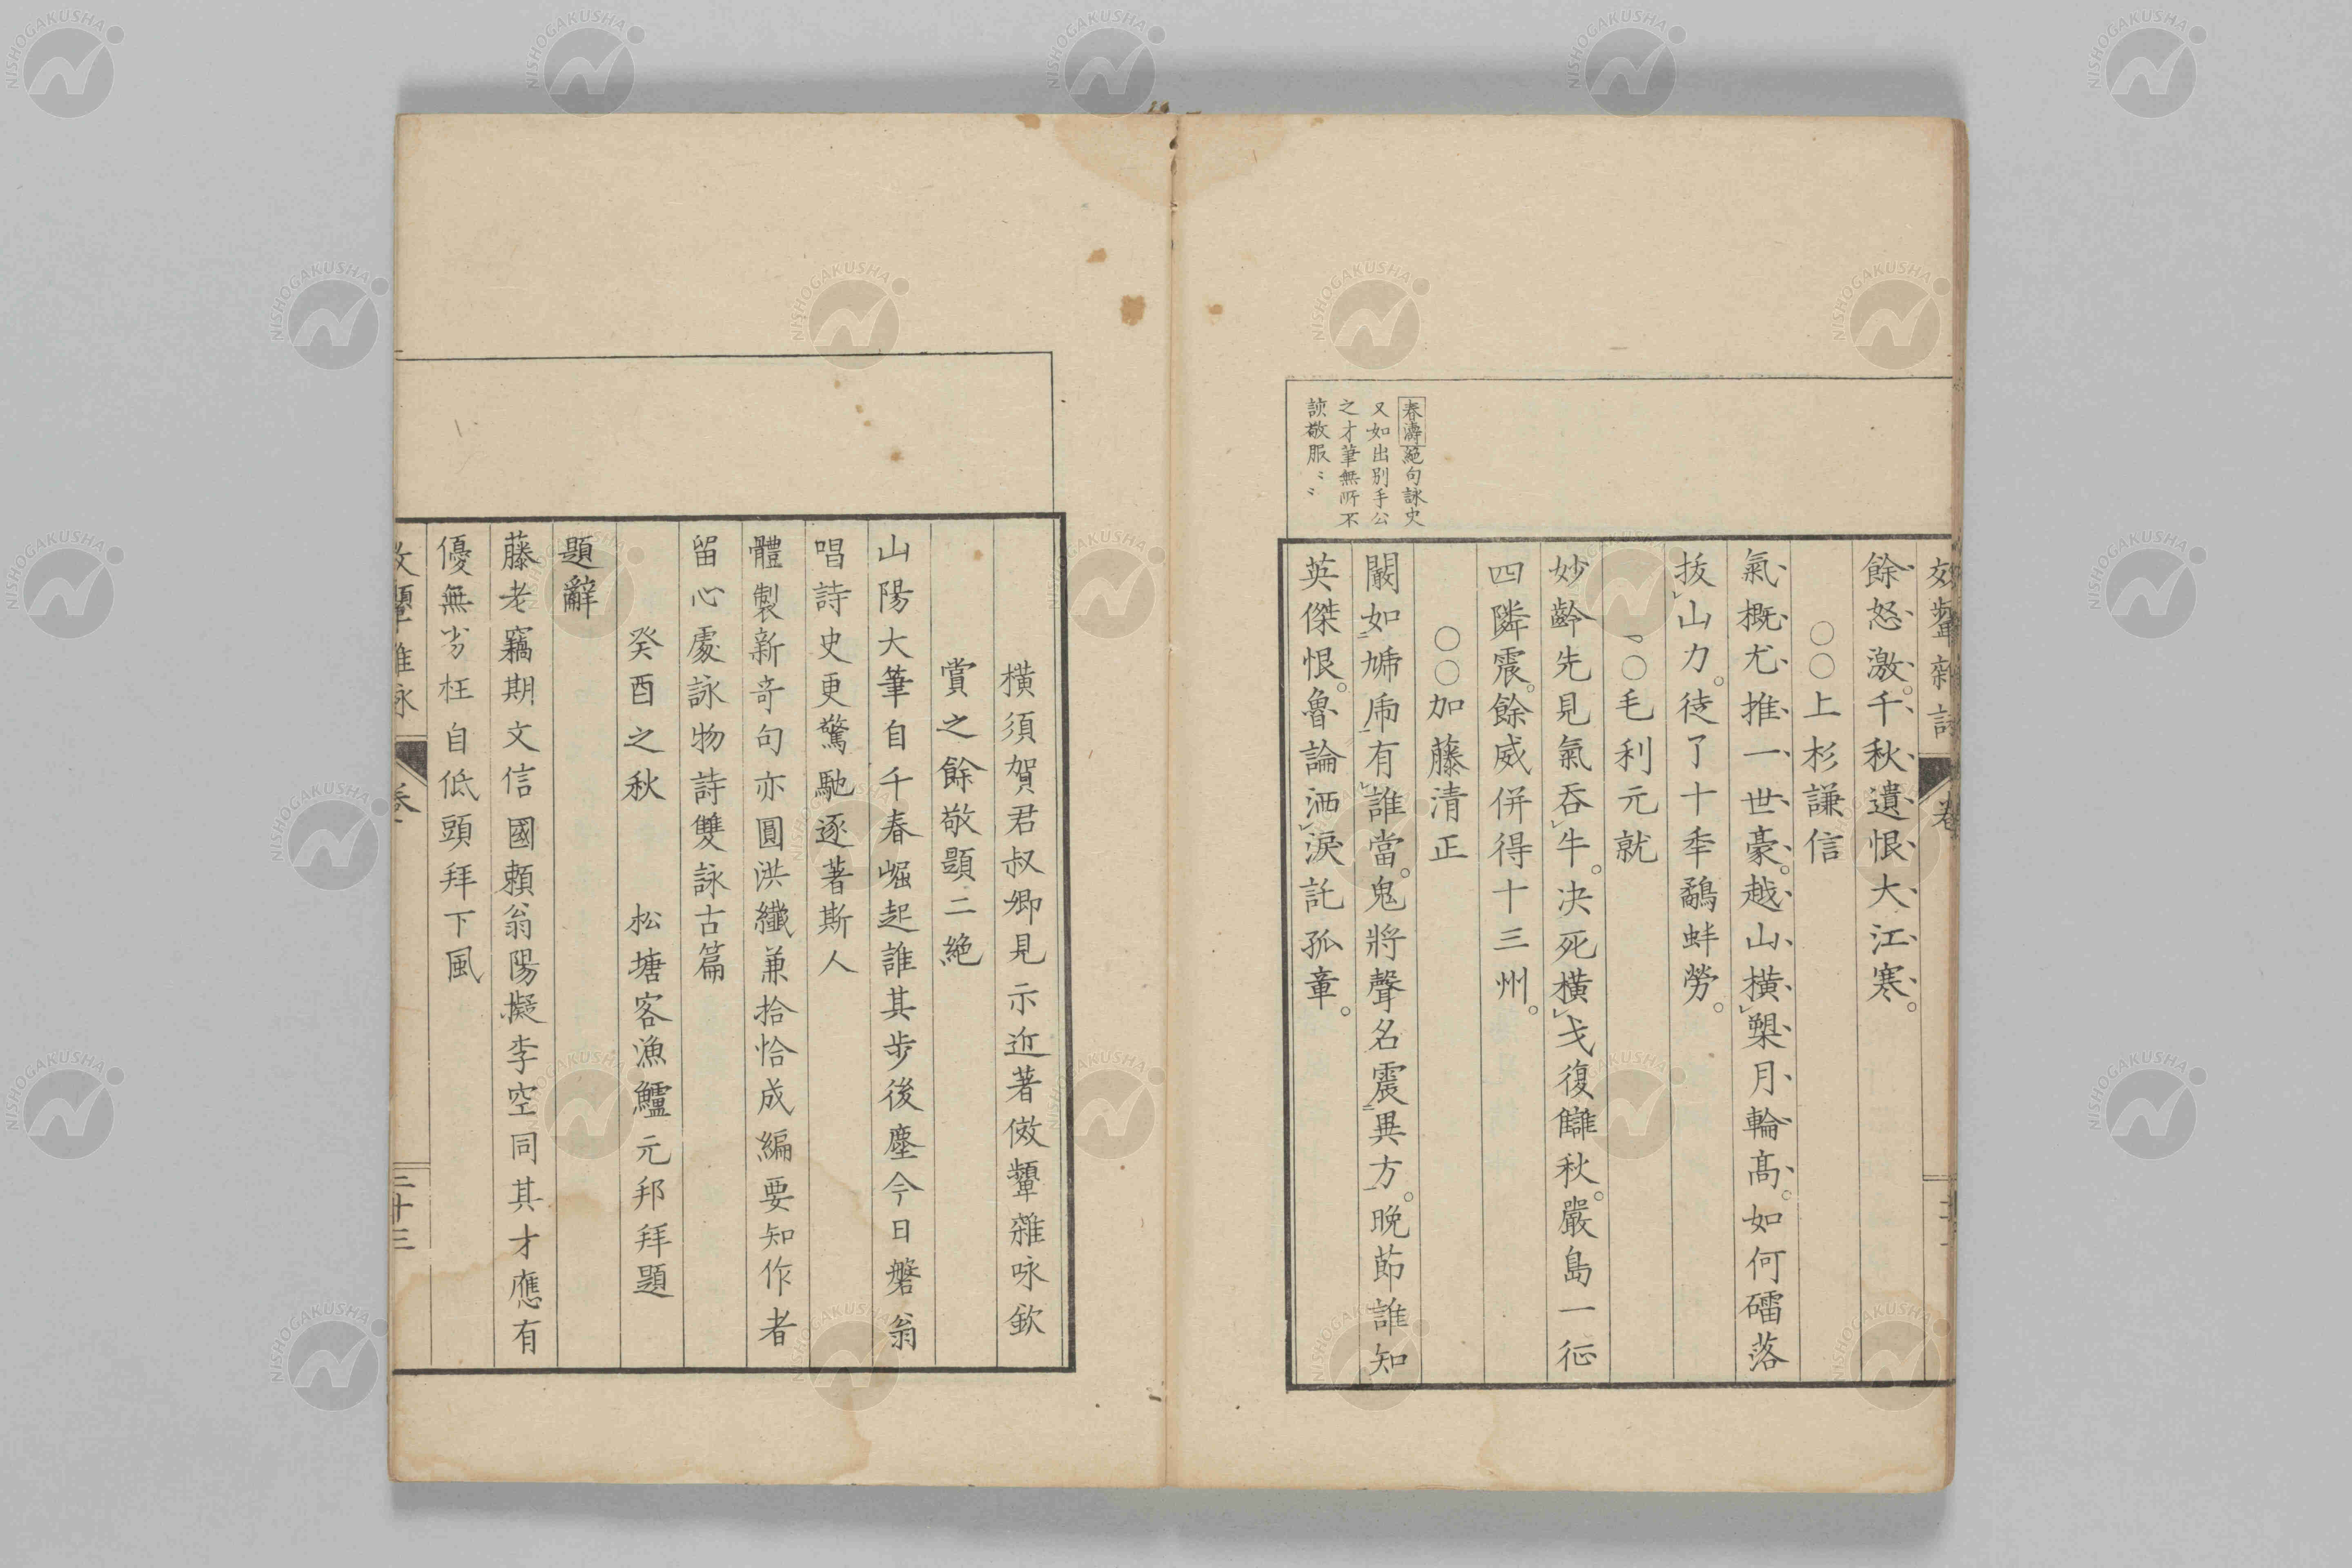 春濤絕句詠史
又如出別手公
之才筆無所不
餘怒激千秋遺恨大江寒
上杉謙信
氣概尤推一世豪越山橫槊月輪高如何礌落
拔山力徒了十秊鷸蚌勞
毛利元就
妙齡先見氣吞牛決死橫戈復讎秋嚴島一征
四隣震餘威併得十三州
加藤清正
闞如虓虎有誰當鬼將聲名震異方晚節誰知
英傑恨魯論洒淚託孤章
橫須賀君叔卿見示近著傚顰雜咏欽
賞之餘敬題二絕
山陽大筆自千春崛起誰其步後塵今日磐翁
唱詩史更驚馳逐著斯人
體製新奇句亦圓洪纖兼拾恰成編要知作者
留心處詠物詩雙詠古篇
癸酉之秋 松塘客漁鱸元邦拜題
題辭
藤老竊期文信國賴翁陽擬李空同其才應有
優無劣枉自低頭拜下風
三十三
NISHOGAKUSHA